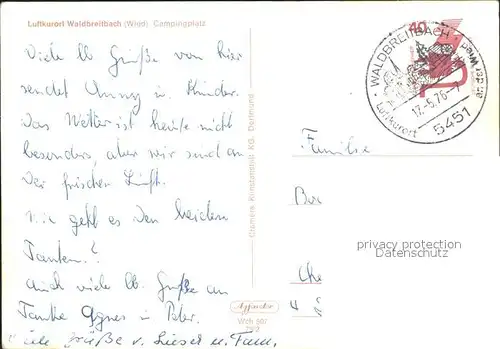 Luftkurort Waldbreitbach (Wied) Campingplatz
Viele lb Grüße von hier
sendet u. Kinder.
Das Wetter ist heute nicht
besonders, aber wir sind an
der frischen Luft.
Wie geht es den beiden
Tanten?
Auch viele lb. Grüße an
Tante Agnes u. Peter.
Viele Grüße v. Lieser u. Fam.
Cramers Kunstanstalt KG. Dortmund
Wch 507
40
WALDBREITBACH
an der Wied
17.-5.76-7
Luftkurort
5451
Familie
privacy protection
Datenschutz